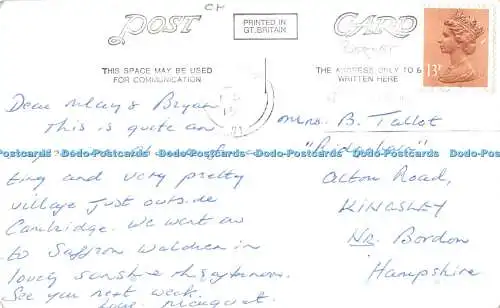 POST CARD
PRINTED IN
GT. BRITAIN
THIS SPACE MAY BE USED
FOR COMMUNICATION
THE ADDRESS ONLY TO
WRITTEN HERE
13P
Dear Mary & Bryan
This is quite an
ting and very pretty
village just outside
Cambridge. We went on
to Saffron Walden in
lovely sunshine this afternoon.
See you next week.
love, Margaret.
Mrs. B. Tallot
Acton Road,
KINGSLEY
Nr. Bordon
Hampshire
Postcards Dodo Postcards Dodo Postcards Dodo Postcards Dodo Postcards Dodo Postcards